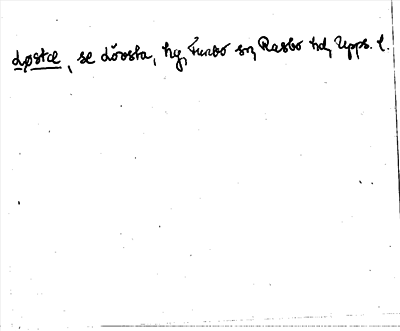 døstæ, se dövsta, hg, Funbo sn, Rasbo hd, Upps. l.